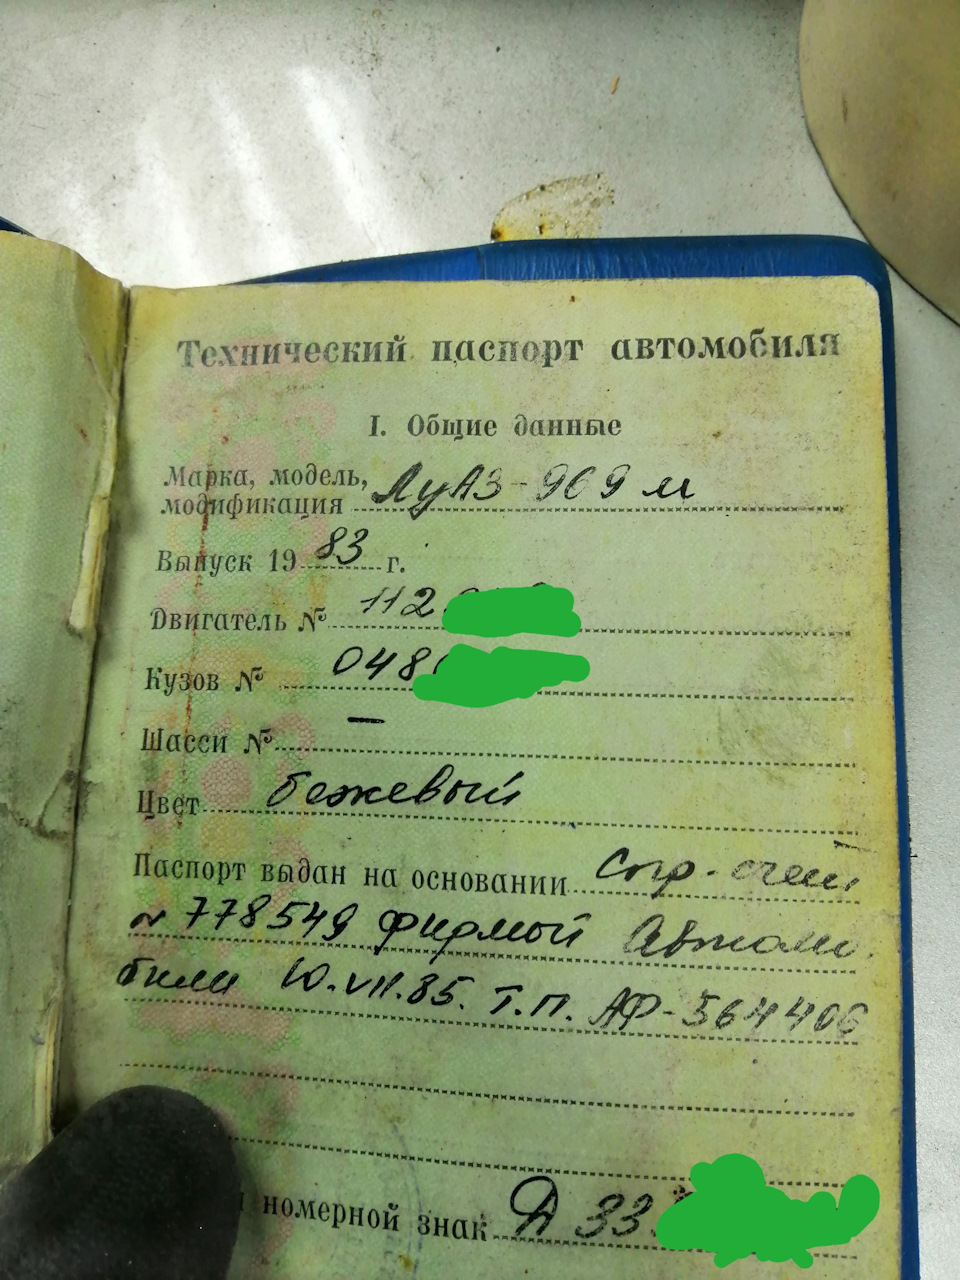 Технический паспорт автомобиля
I. Общие данные
Марка, модель,
модификация ЛуАЗ-969м
Выпуск 1983 г.
Двигатель № 112
Кузов № 048
Шасси № —
Цвет бежевый
Паспорт выдан на основании Спр. счет
№ 778549 фирмой Автомо
били 10.VII.85. Т.П. АФ-564406
номерной знак Д 33